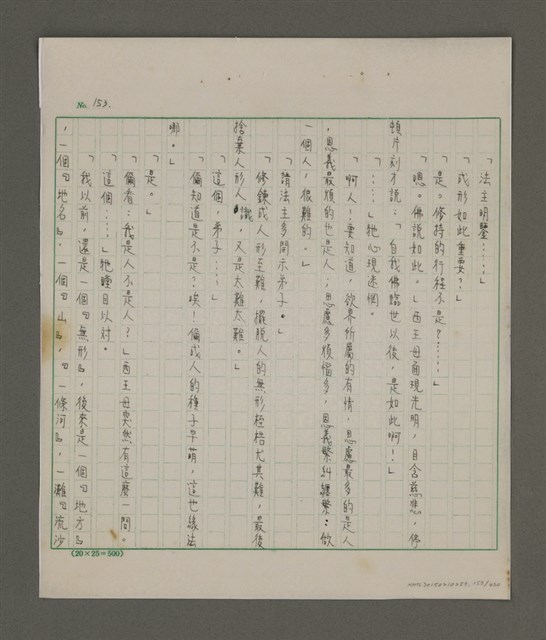 No. 153.
「法主明鑒……」
「成形如此重要?」
「是。修持的行程不是?……」
「嗯。佛說如此。」西王母面現光明,目含慈悲,停
頓片刻才說:「自我佛臨世以後,是如此啊!」
「……」牠心現迷惘。
「啊人!要知道,欲界所屬的有情,思慮最多的是人
,恩義最煩的也是人;思慮多煩惱多,恩義繁糾纏繁:做
一個人,很難的。」
「請法主多開示弟子。」
「修鍊成人形至難,擺脫人的無形桎梏尤其難,最後
捨棄人形人識,又是太難太難。」
「這個,弟子……」
「偏知道是不是?唉!偏成人的種子早萌,這也緣法
哪。」
「是。」
「偏看:我是人不是人?」西王母突然有這麼一問。
「這個……」牠瞠目以對。
「我以前,還是一個『無形』,後來是一個『地方』
,一個『地名』,一個『山』,『一條河』,一灘『流沙
(20×25=500)